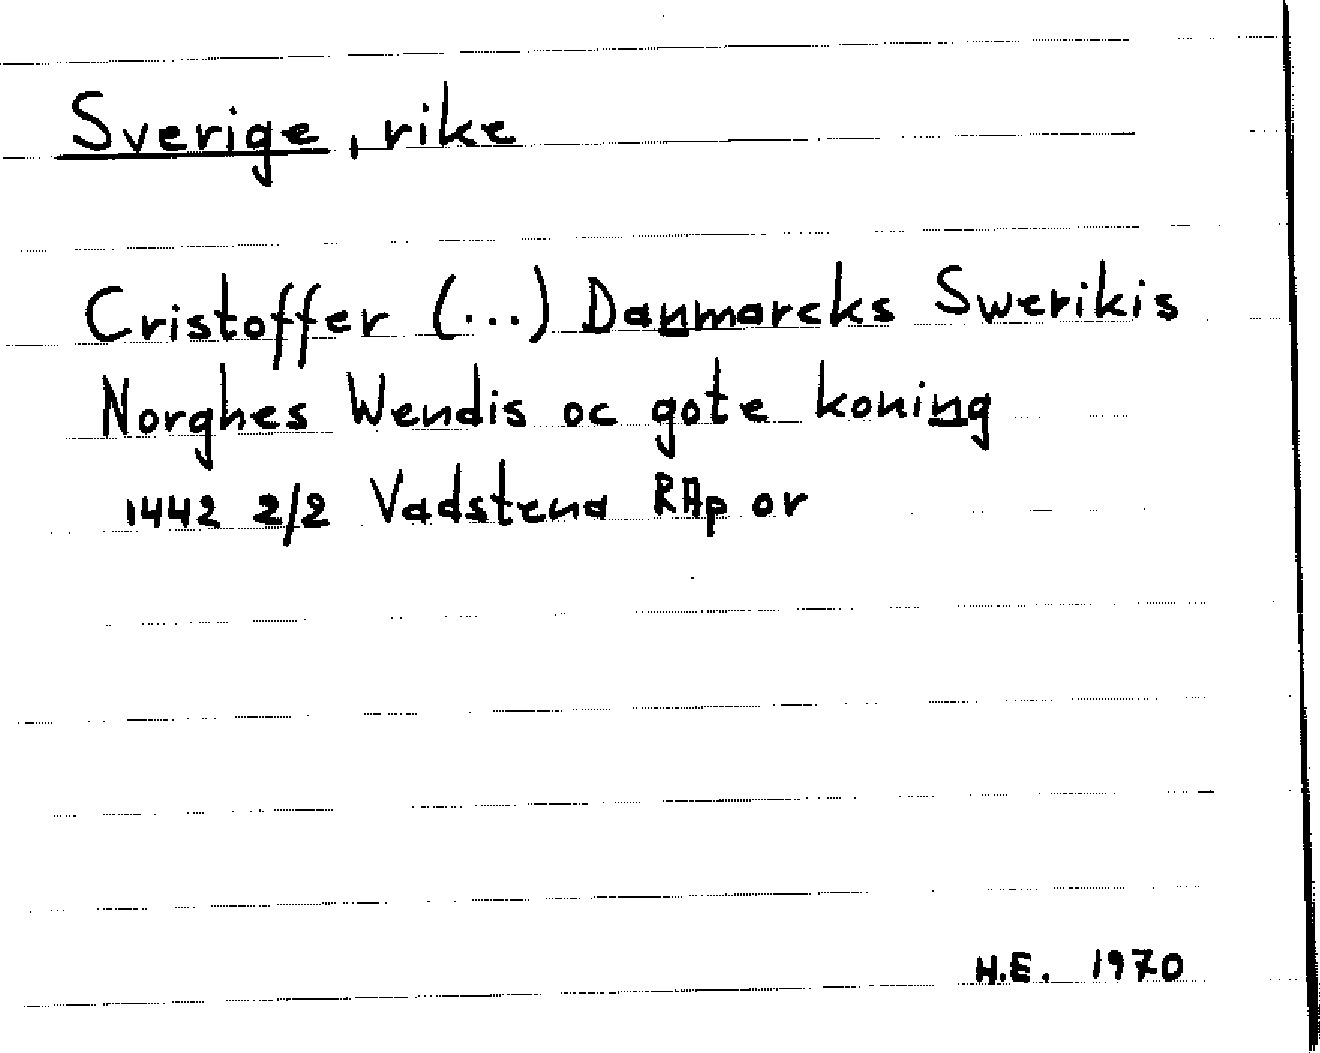 Sverige, rike
Cristoffer (...) Danmarcks Swerikis
Norghes Wendis oc gote koning
1442 2/2 Vadstena RAp or
H.E. 1970